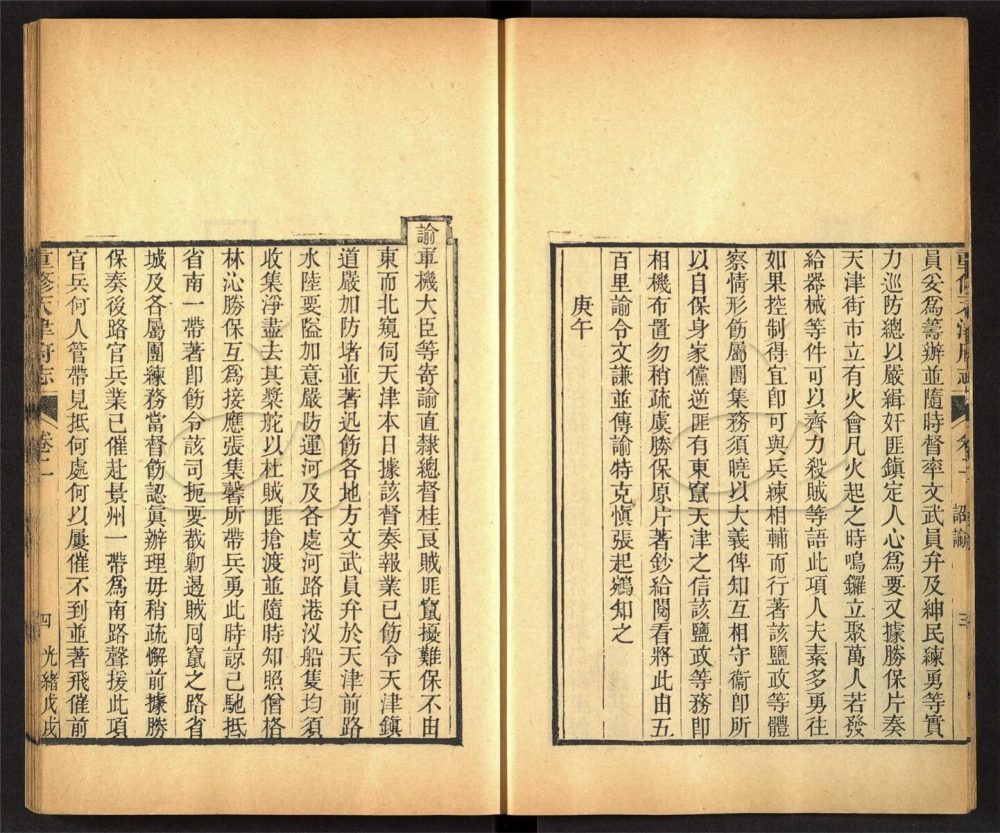 重修天津府志 卷二 詔諭 三
員妥為籌辦並隨時督率文武員弁及紳民練勇等實
力巡防總以嚴緝奸匪鎮定人心為要又據勝保片奏
天津街市立有火會凡火起之時鳴鑼立聚萬人若發
給器械等件可以齊力殺賊等語此項人夫素多勇往
如果控制得宜卽可與兵練相輔而行著該鹽政等體
察情形飭屬團集務須曉以大義俾知互相守衞卽所
以自保身家儻逆匪有東竄天津之信該鹽政等務卽
相機布置勿稍疏虞勝保原片著鈔給閱看將此由五
百里諭令文謙並傳諭特克愼張起鵷知之
庚午
諭軍機大臣等寄諭直隸總督桂良賊匪竄擾難保不由
東而北窺伺天津本日據該督奏報業已飭令天津鎮
道嚴加防堵並著迅飭各地方文武員弁於天津前路
水陸要隘加意嚴防運河及各處河路港汊船隻均須
收集淨盡去其槳舵以杜賊匪搶渡並隨時知照僧格
林沁勝保互為接應張集馨所帶兵勇此時諒已馳抵
省南一帶著卽飭令該司扼要截勦遏賊囘竄之路省
城及各屬團練務當督飭認眞辦理毋稍疏懈前據勝
保奏後路官兵業已催赴景州一帶為南路聲援此項
官兵何人管帶見抵何處何以屢催不到並著飛催前
重修天津府志 卷二 四 光緒戊戌